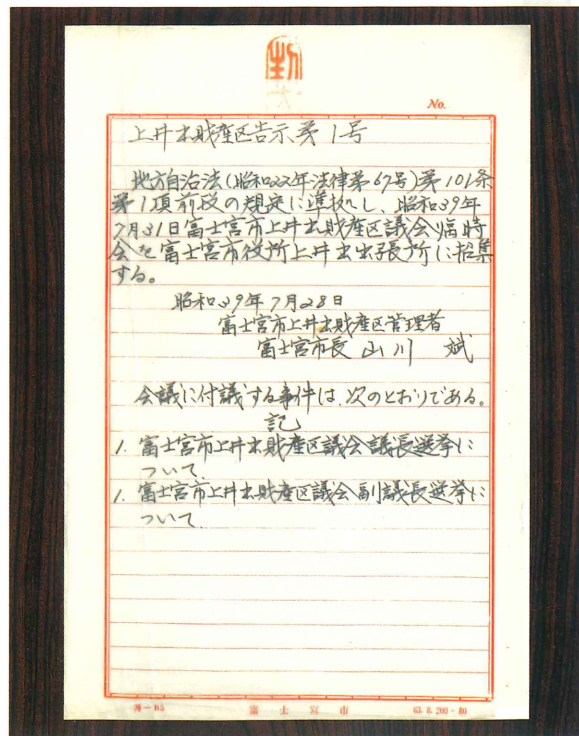 No.
上井出財産区告示第1号
地方自治法(昭和22年法律第67号)第101条
第1項前段の規定に準拠し、昭和39年
7月31日富士宮市上井出財産区議会臨時
会を富士宮市役所上井出出張所に招集
する。
昭和39年7月28日
富士宮市上井出財産区管理者
富士宮市長 山川 斌
会議に付議する事件は、次のとおりである。
記
1. 富士宮市上井出財産区議会議長選挙に
ついて
1. 富士宮市上井出財産区議会副議長選挙に
ついて
富士宮市